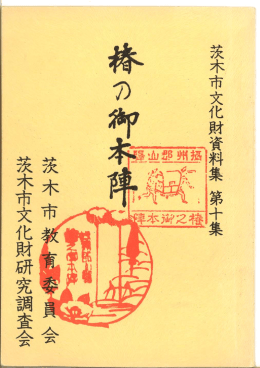 茨木市文化財資料集 第十集
椿の御本陣
摂州郡山驛
椿之御本陣
茨木市教育委員会
茨木市文化財研究調査会